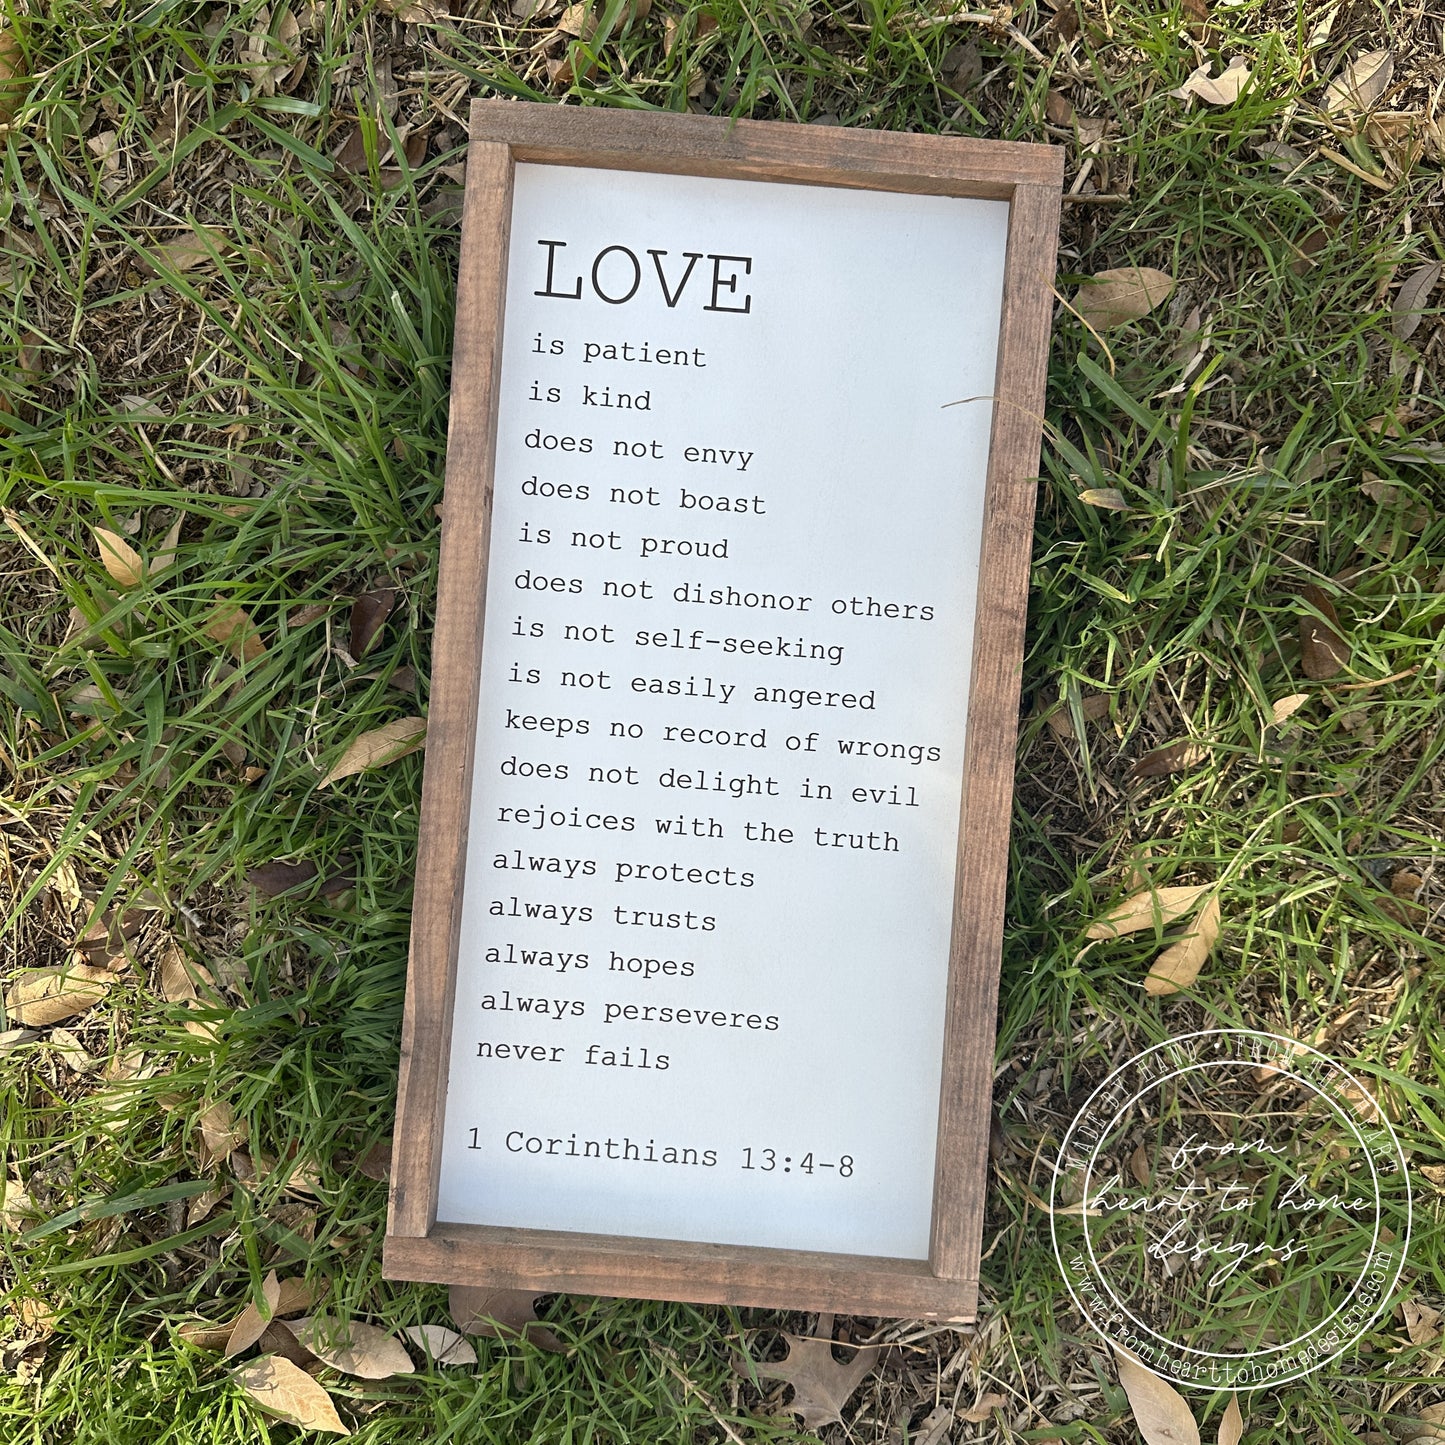 LOVE
is patient
is kind
does not envy
does not boast
is not proud
does not dishonor others
is not self-seeking
is not easily angered
keeps no record of wrongs
does not delight in evil
rejoices with the truth
always protects
always trusts
always hopes
always perseveres
never fails
1 Corinthians 13:4-8
MADE BY HAND • FROM THE HEART
from
heart to home
designs
www.fromhearttohomedesigns.com